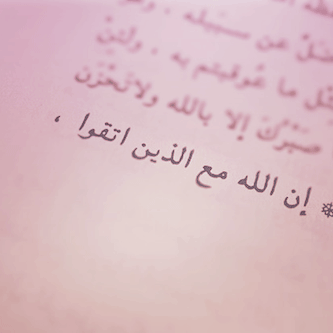 ضل عن سبيله ، وهو
بمثل ما عوقبتم به ، ولئن
صبرك إلا بالله ولا تحزن
إن الله مع الذين اتقوا ،